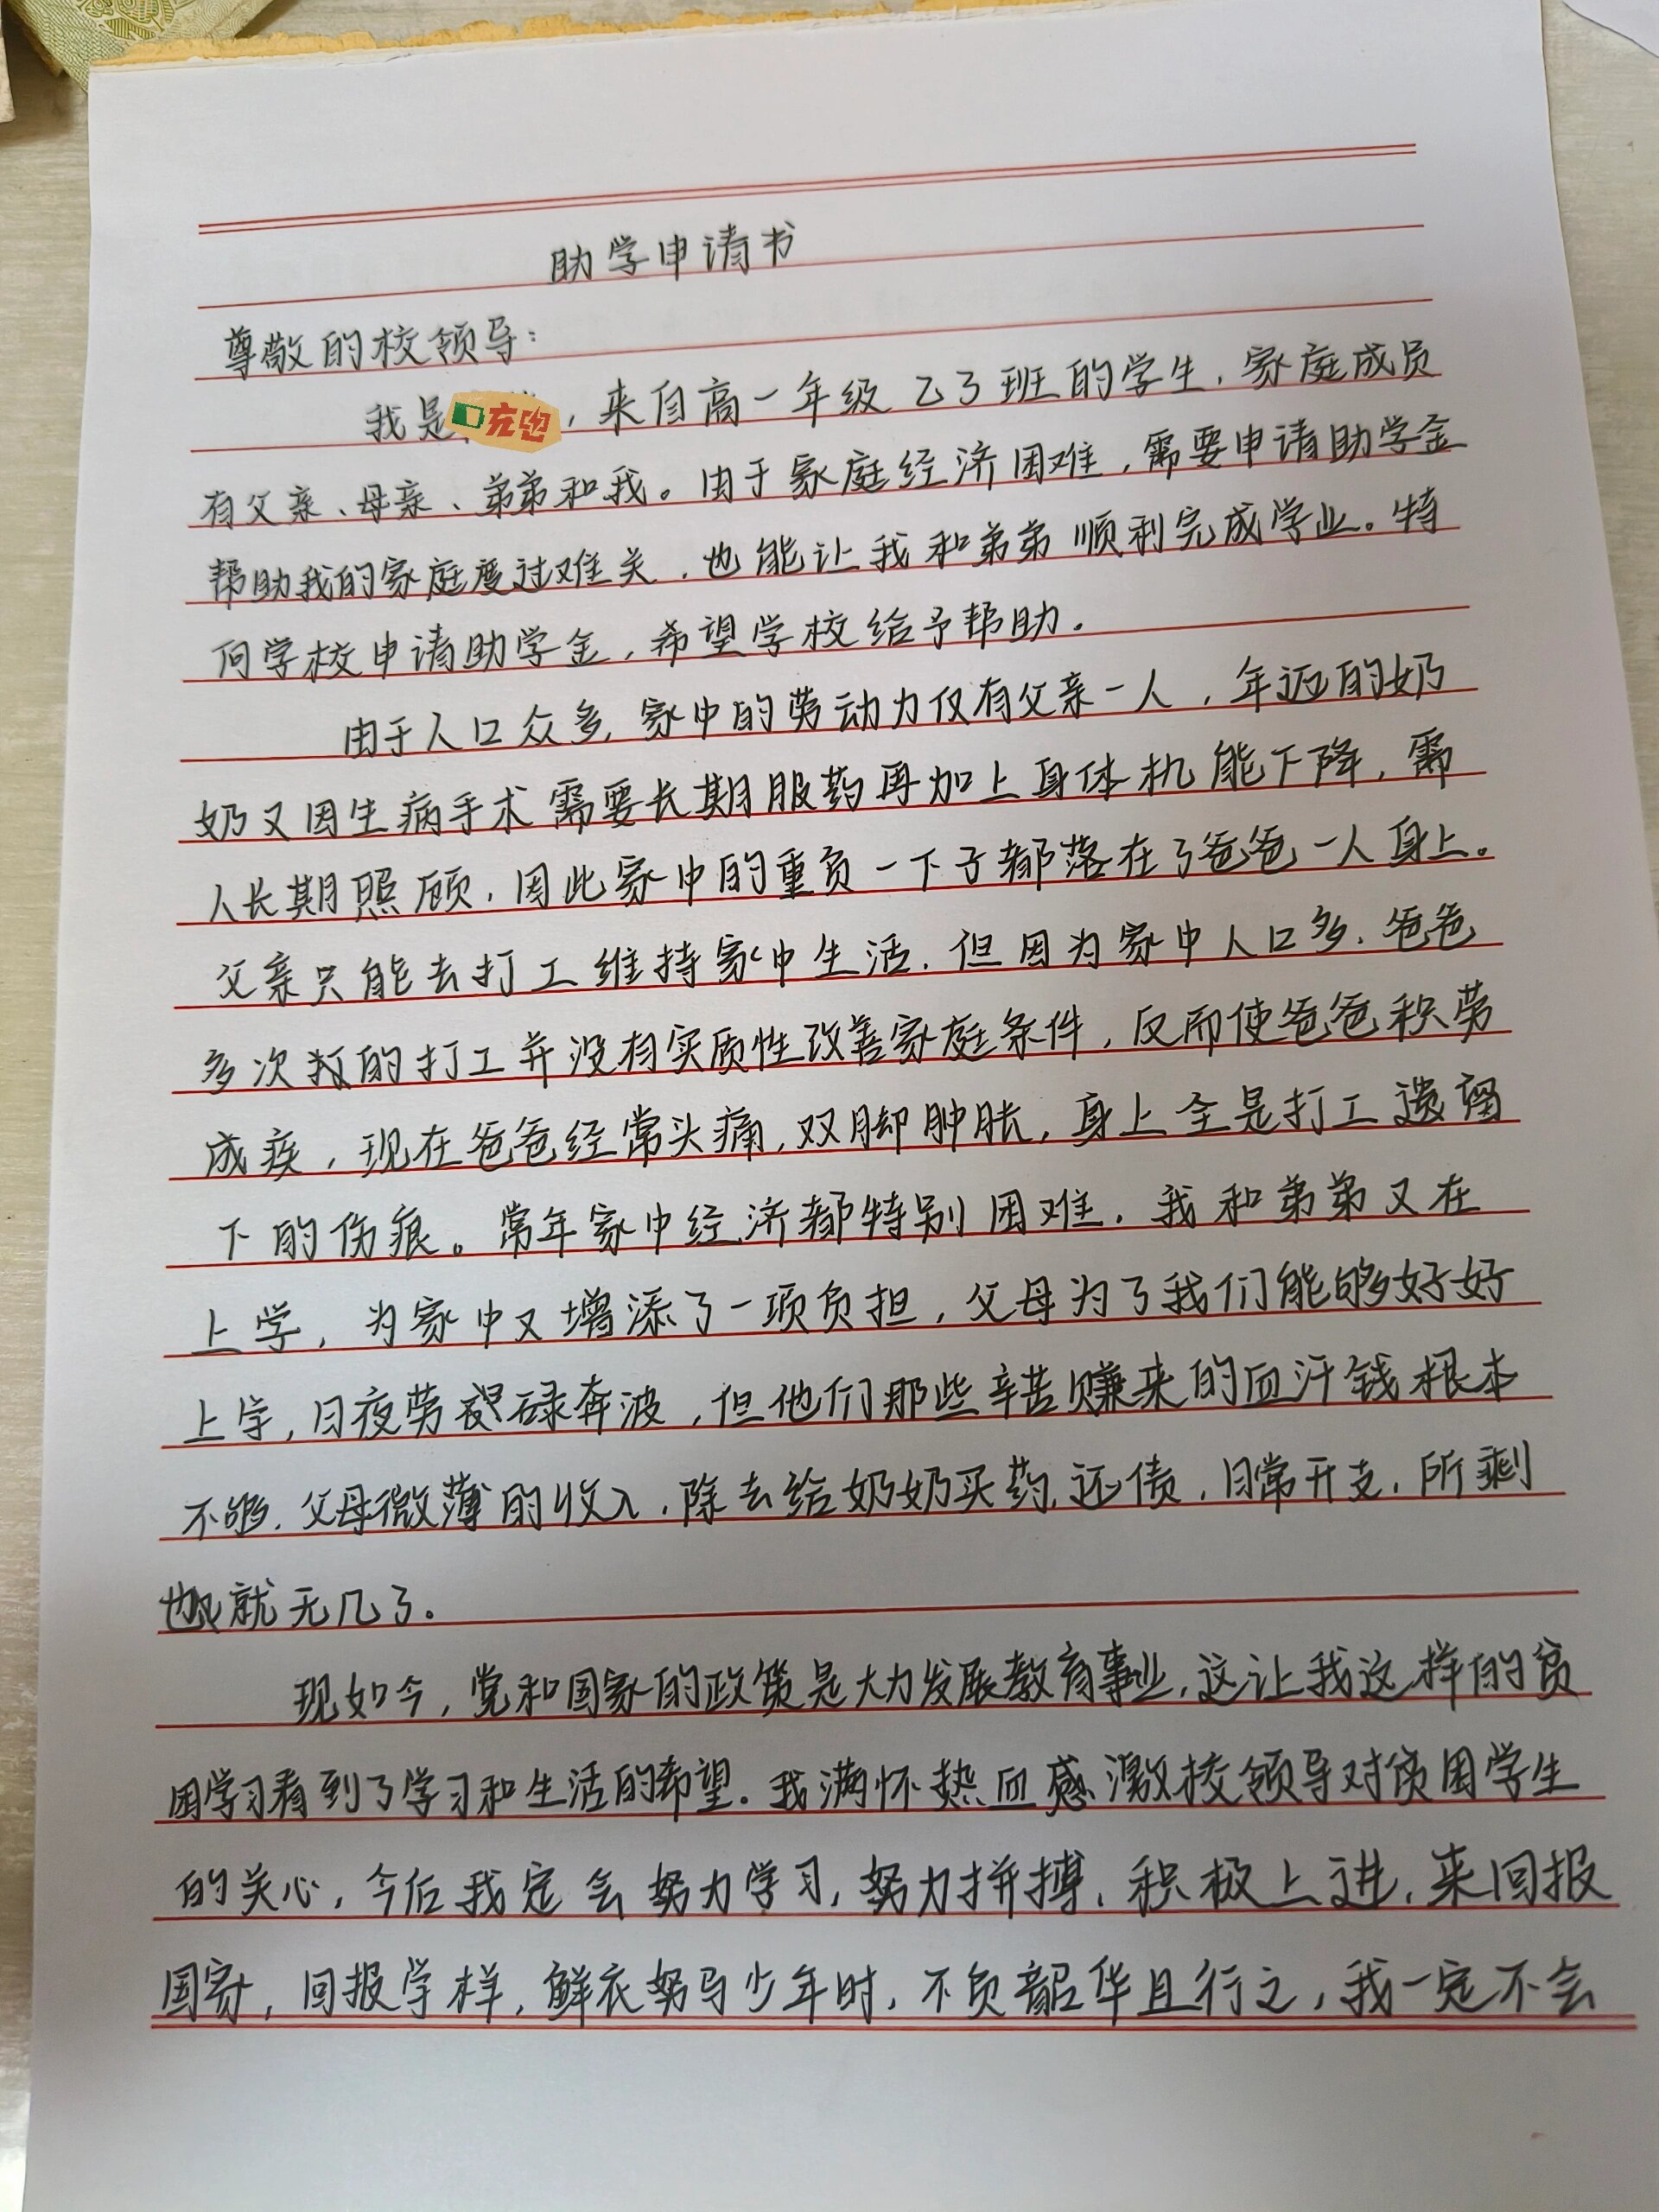 助学申请书
尊敬的校领导：
我是充电，来自高一年级 乙3班的学生，家庭成员
有父亲、母亲、弟弟和我。由于家庭经济困难，需要申请助学金
帮助我的家庭度过难关，也能让我和弟弟顺利完成学业。特
向学校申请助学金，希望学校给予帮助。
由于人口众多，家中的劳动力仅有父亲一人，年迈的奶
奶又因生病手术需要长期服药再加上身体机能下降，需
人长期照顾，因此家中的重负一下子都落在了爸爸一人身上。
父亲只能去打工维持家中生活，但因为家中人口多，爸爸
多次的打工并没有实质性改善家庭条件，反而使爸爸积劳
成疾，现在爸爸经常头痛，双脚肿胀，身上全是打工遗留
下的伤痕。常年家中经济都特别困难，我和弟弟又在
上学，为家中又增添了一项负担，父母为了我们能够好好
上学，日夜劳碌奔波，但他们那些辛苦赚来的血汗钱根本
不够，父母微薄的收入，除去给奶奶买药，还债，日常开支，所剩
也就无几了。
现如今，党和国家的政策是大力发展教育事业，这让我这样的贫
困学习看到了学习和生活的希望。我满怀热血感激校领导对贫困学生
的关心，今后我定会努力学习，努力拼搏，积极上进，来回报
国家，回报学样，鲜衣努马少年时，不负韶华且行之，我一定不会